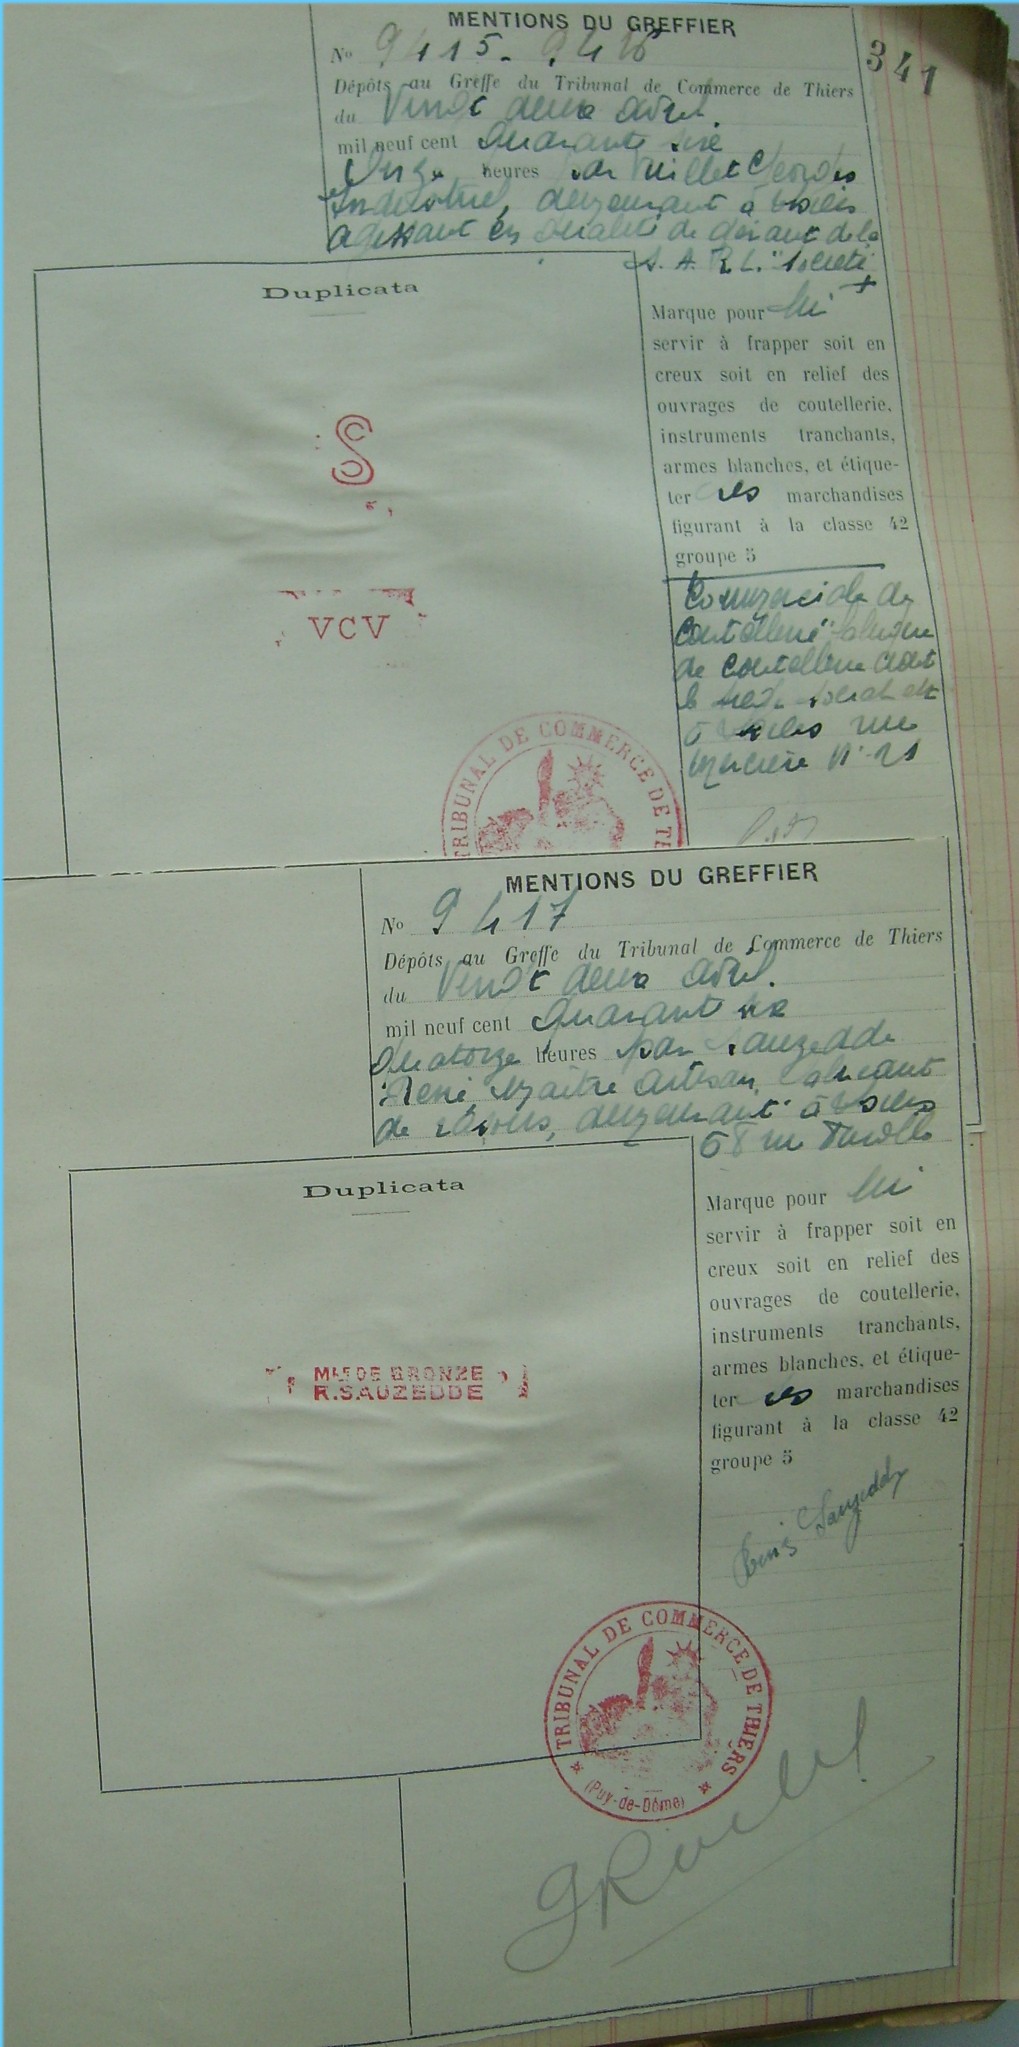 MENTIONS DU GREFFIER
341
No 9415. 9416
Dépôts au Greffe du Tribunal de Commerce de Thiers
du Vingt deux avril.
mil neuf cent Quarante six
Onze heures par Georges
Industriel, demeurant à Thiers
agissant en qualité de gérant de la
S. A. R L. "Société
Duplicata
S
VCV
TRIBUNAL DE COMMERCE DE
Marque pour lui
servir à frapper soit en
creux soit en relief des
ouvrages de coutellerie,
instruments tranchants,
armes blanches, et étique-
ter ses marchandises
figurant à la classe 42
groupe 5
Commerciale de
Coutellerie" fabrique
de coutellerie dont
le siège social est
à Thiers rue
Mercière N° 21
MENTIONS DU GREFFIER
No 9417
Dépôts au Greffe du Tribunal de Commerce de Thiers
du Vingt deux avril.
mil neuf cent Quarante six
Quatorze heures par Sauzedde
René, Maître artisan, fabricant
de rasoirs, demeurant à Thiers
68 rue Durolle
Duplicata
MLE DE BRONZE
R.SAUZEDDE
Marque pour lui
servir à frapper soit en
creux soit en relief des
ouvrages de coutellerie,
instruments tranchants,
armes blanches, et étique-
ter ses marchandises
figurant à la classe 42
groupe 5
Sauzedde
TRIBUNAL DE COMMERCE DE THIERS
(Puy-de-Dôme)